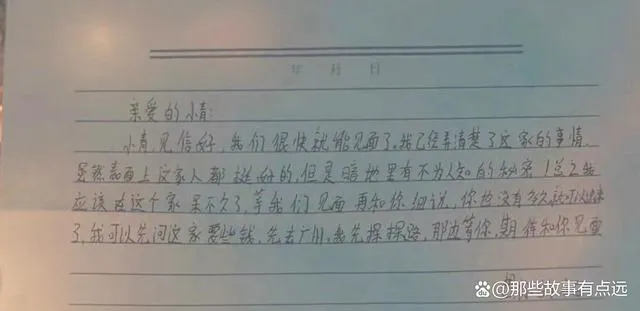 年 月 日
亲爱的小青:
小青见信好,我们很快就能见面了。我已经弄清楚了这家的事情,
虽然表面上这家人都挺好的,但是暗地里有不为人知的秘密!总之我
应该在这个家呆不久了,等我们见面再和你细说,你应没有多久就可以出来
了,我可以先问这家要些钱,先去广州,我先探探路,那边等你,期待和你见面
@那些故事有点远